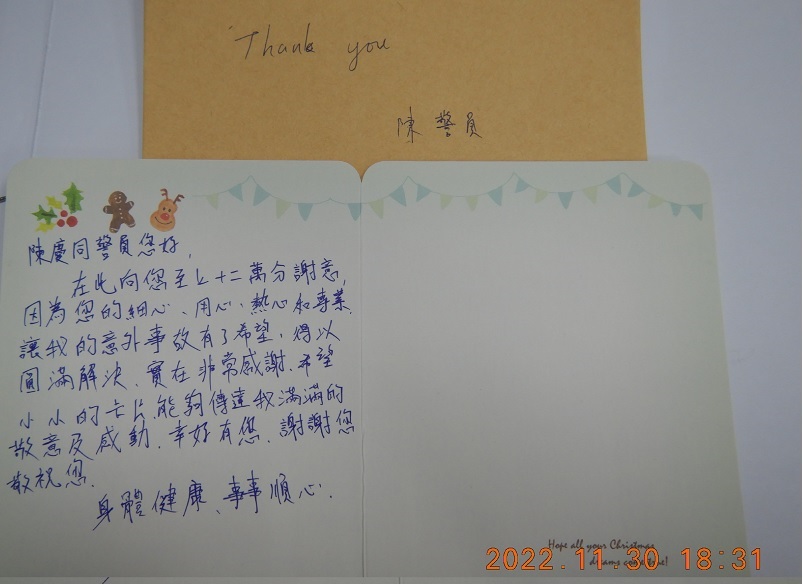 Thank you
陳警員
陳慶同警員您好,
在此向您至上十二萬分謝意,
因為您的細心、用心、熱心和專業,
讓我的意外事故有了希望,得以
圓滿解決,實在非常感謝.希望
小小的卡片,能夠傳達我滿滿的
敬意及感動.幸好有您.謝謝您
敬祝您.
身體健康、事事順心.
Hope all your Christmas
dreams come true!
2022.11.30 18:31